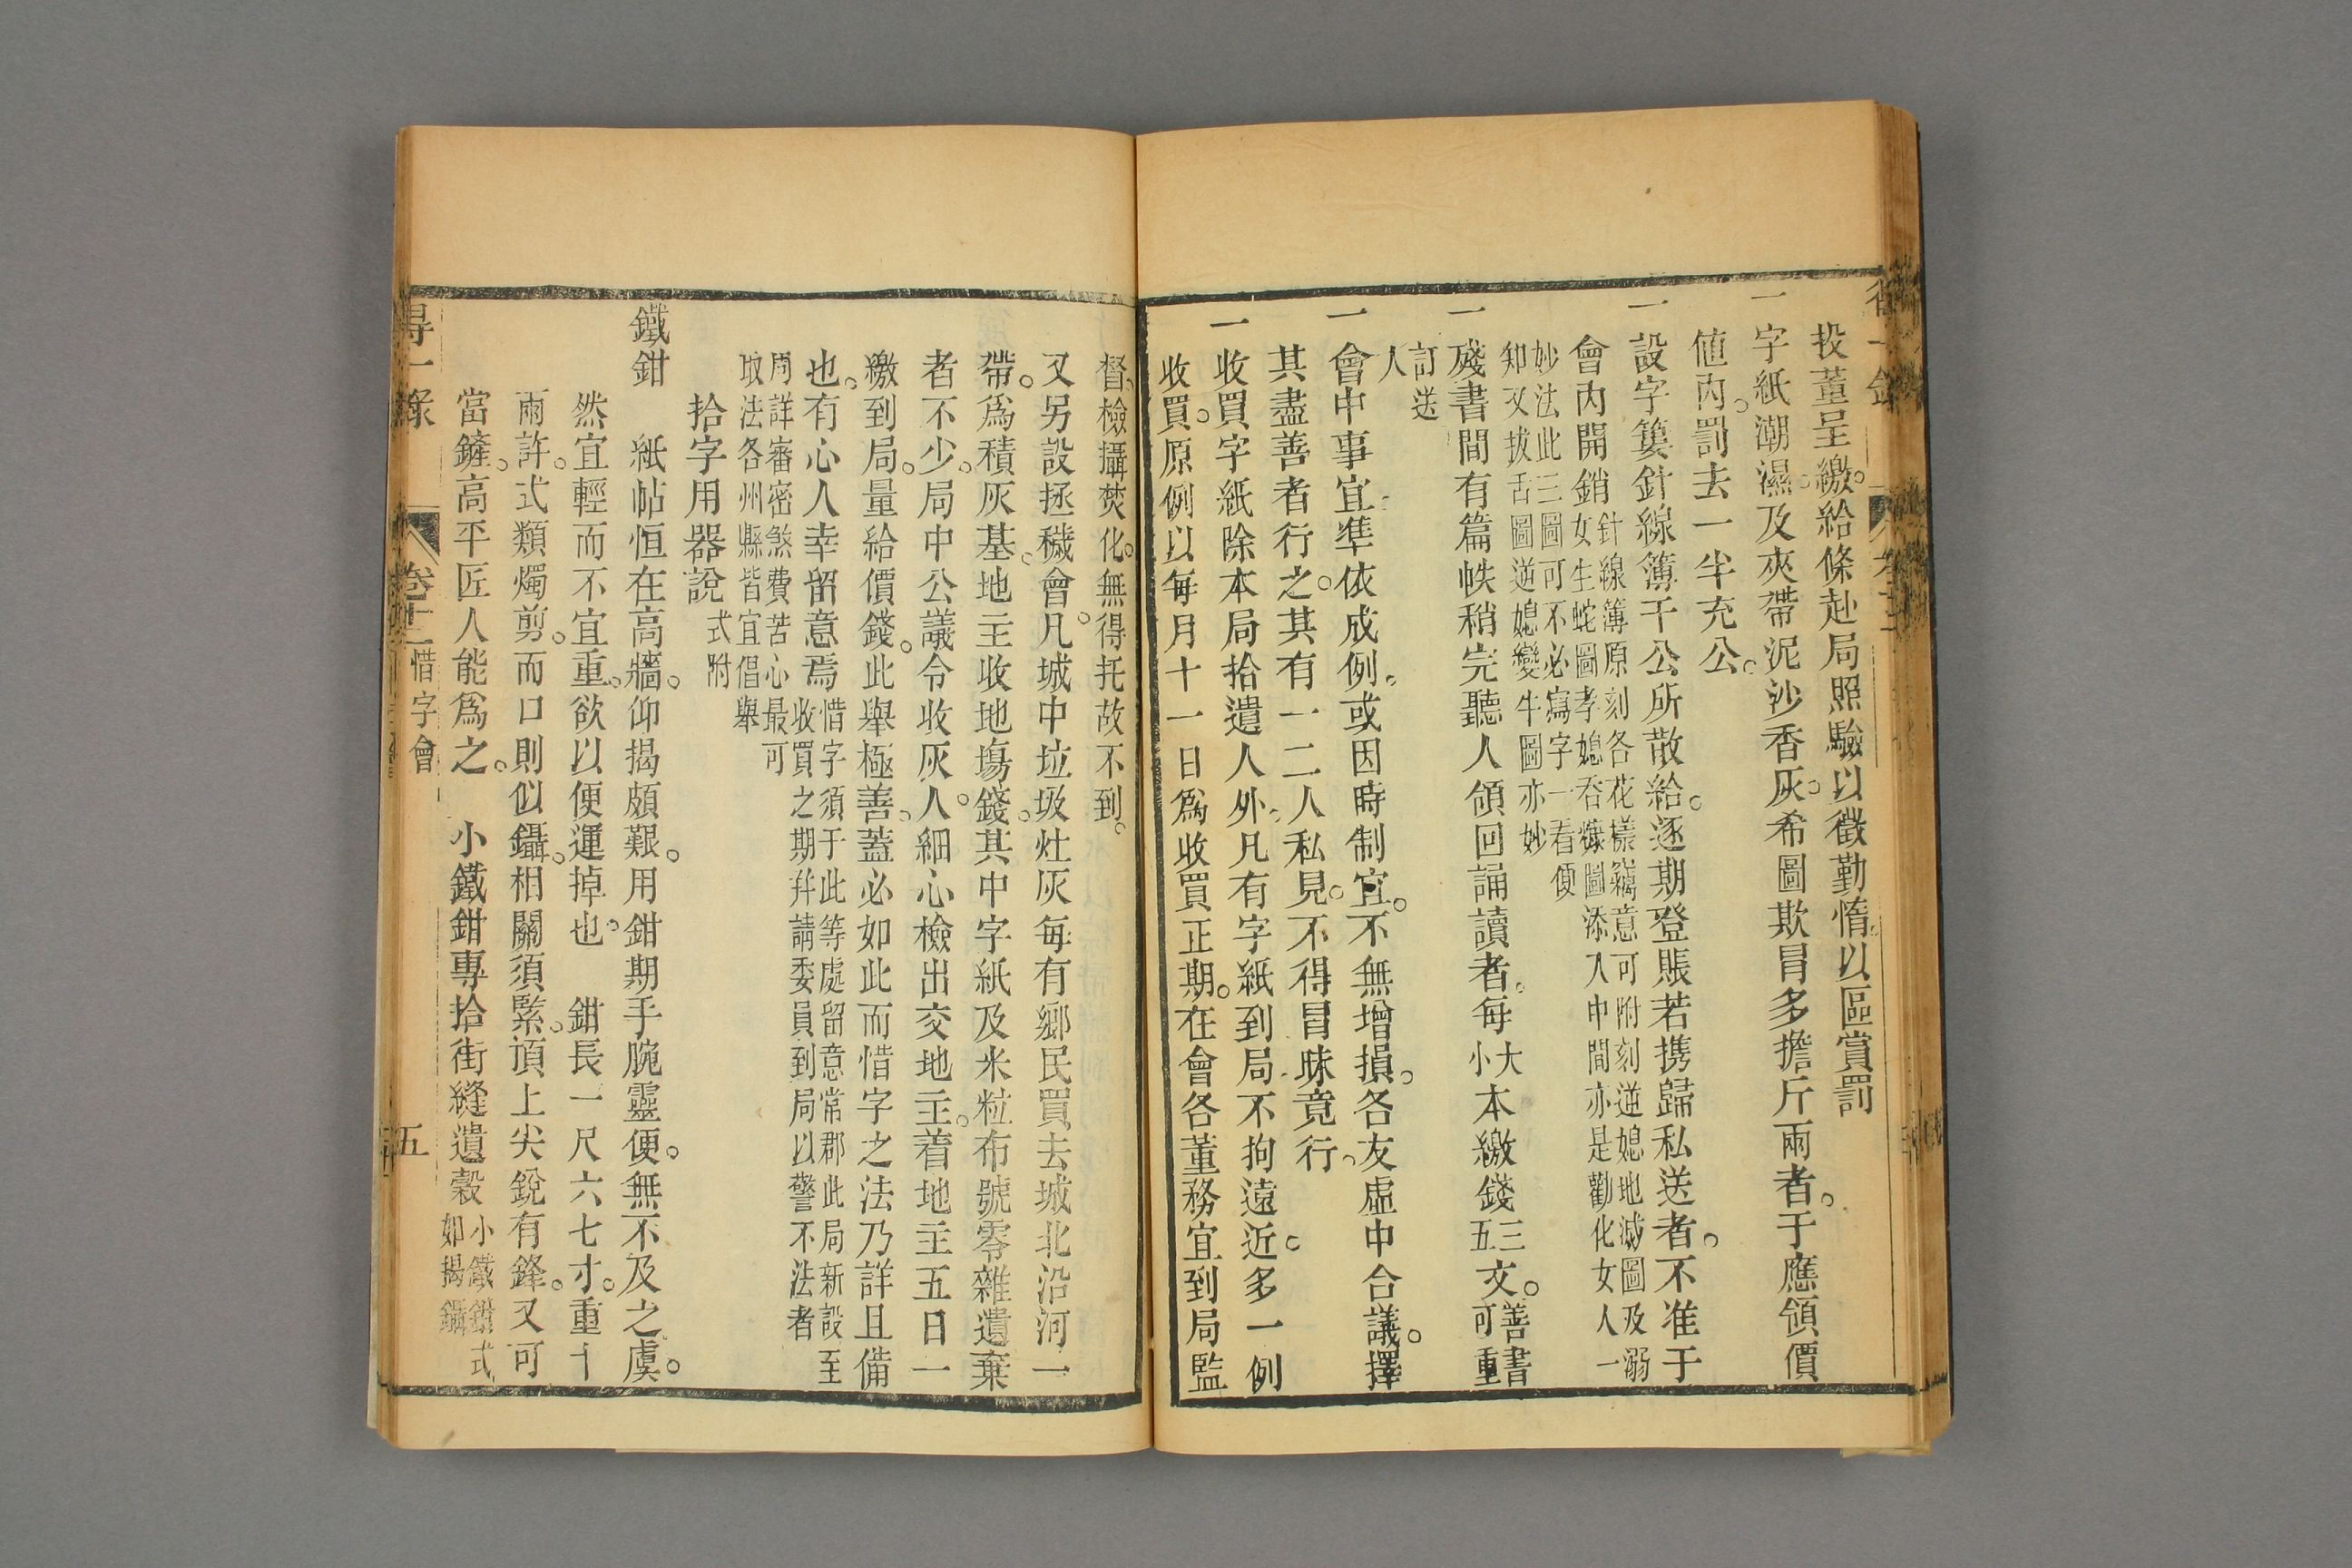 投董呈繳。給條赴局照驗以徵勤惰。以區賞罰
一字紙潮濕。及夾帶泥沙香灰。希圖欺冒多擔斤兩者。于應領價
値內。罰去一半充公。
一設字簍針線簿千公所散給。逐期登賬若携歸私送者。不准于
會內開銷針線簿原刻各花樣竊意可附刻逆媳地滅圖及溺
女生蛇圖孝媳吞爆圖添入中間亦是勸化女人一
妙法此三圖可不必寫字一看便
知又拔舌圖逆媳變牛圖亦妙
一殘書間有篇帙稍完聽人領回誦讀者。每大
小本繳錢三
五文。善書
可重
訂送
人
一會中事宜準依成例。或因時制宜。不無增損。各友虛中合議。擇
其盡善者行之。其有一二人私見。不得冒昧竟行。
一收買字紙除本局拾遺人外。凡有字紙到局不拘遠近。多一例
收買。原例以每月十一日爲收買正期。在會各董務宜到局監
督。檢攝焚化。無得托故不到。
又另設拯穢會。凡城中垃圾灶灰每有鄉民買去城北沿河一
帶。爲積灰基。地主收地塲錢。其中字紙及米粒布號零雜遺棄
者不少。局中公議令收灰人。細心檢出交地主。着地主五日一
繳到局。量給價錢。此舉極善。蓋必如此而惜字之法乃詳且備
也。有心人幸留意焉惜字須于此等處留意常郡此局新設至
收買之期幷請委員到局以警不法者
周詳審密煞費苦心最可
取法各州縣皆宜倡舉
拾字用器說式附
鐵鉗 紙帖恒在高牆。仰揭頗艱。用鉗期手腕靈便。無不及之虞。
然宜輕而不宜重。欲以便運掉也。 鉗長一尺六七寸。重十
兩許。式類燭剪。而口則似鑷。相關須緊。頂上尖銳有鋒。又可
當鏟。高平匠人能爲之。 小鐵鉗專拾街縫遺穀小鐵鉗式
如揭鑷
得一錄 卷十二 惜字會 五